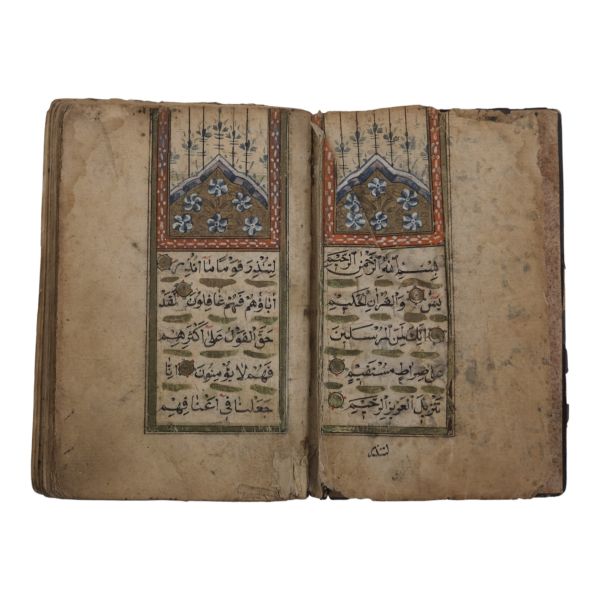 بِسْمِ اللهِ الرَّحْمٰنِ الرَّحِيمِ
يس وَالْقُرْاٰنِ الْحَكِيمِ
اِنَّكَ لَمِنَ الْمُرْسَلِينَ
عَلٰى صِرَاطٍ مُسْتَقِيمٍ
تَنْزِيلَ الْعَزِيزِ الرَّحِيمِ
لتنذر
لِتُنْذِرَ قَوْمًا مَا اُنْذِرَ
اٰبَاؤُهُمْ فَهُمْ غَافِلُونَ لَقَدْ
حَقَّ الْقَوْلُ عَلٰى اَكْثَرِهِمْ
فَهُمْ لَا يُؤْمِنُونَ اِنَّا
جَعَلْنَا فِى اَعْنَاقِهِمْ